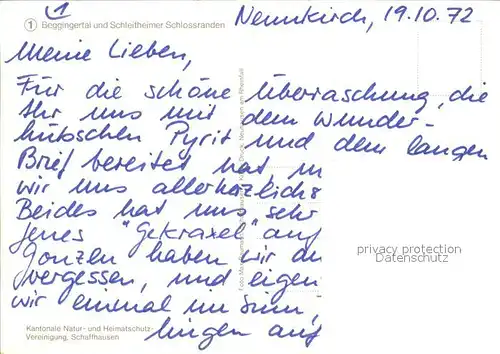 1
① Beggingertal und Schleitheimer Schlossranden
Neunkirch, 19.10.72
Meine Lieben,
Für die schöne Überraschung, die
Ihr uns mit dem wunder-
hübschen Pyrit und dem langen
Brief bereitet hat, m
wir uns allerherzlichs
Beides hat uns sehr
jenes "Gekraxel" auf
Gonzen haben wir
vergessen, und eigen
wir einmal im Sinn,
lingen auf
privacy protection
Datenschutz
Kantonale Natur- und Heimatschutz-
Vereinigung, Schaffhausen